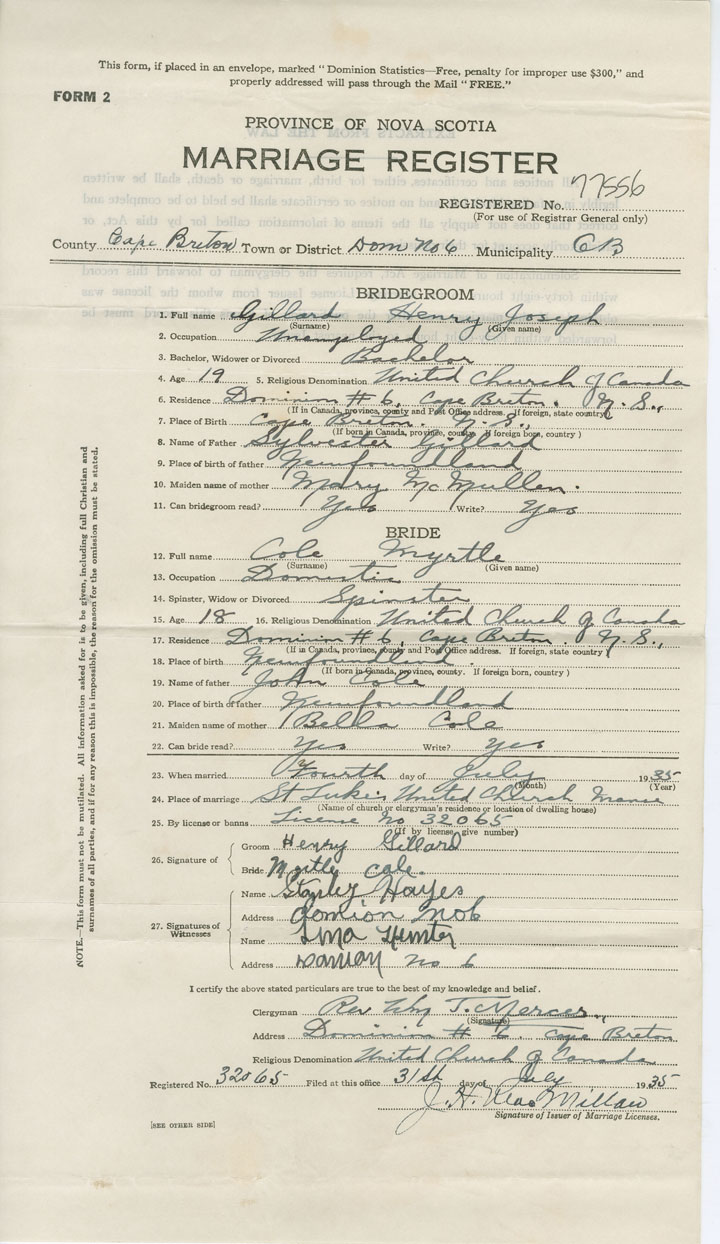 This form, if placed in an envelope, marked "Dominion Statistics—Free, penalty for improper use $300," and
properly addressed will pass through the Mail "FREE."
FORM 2
PROVINCE OF NOVA SCOTIA
MARRIAGE REGISTER
REGISTERED No. 77556
(For use of Registrar General only)
County Cape Breton Town or District Dom No 6 Municipality CB
BRIDEGROOM
1. Full name Gillard Henry Joseph
(Surname) (Given name)
2. Occupation Unemployed
3. Bachelor, Widower or Divorced Bachelor
4. Age 19 5. Religious Denomination United Church of Canada
6. Residence Dominion # 6, Cape Breton. N. S.,
(If in Canada, province, county and Post Office address. If foreign, state country)
7. Place of Birth Cape Breton. N. S.,
(If born in Canada, province, county. If foreign born, country)
8. Name of Father Sylvester Gillard
9. Place of birth of father Newfoundland
10. Maiden name of mother Mary McMullen.
11. Can bridegroom read? Yes Write? Yes
BRIDE
12. Full name Cole Myrtle
(Surname) (Given name)
13. Occupation Domestic
14. Spinster, Widow or Divorced Spinster
15. Age 18 16. Religious Denomination United Church of Canada
17. Residence Dominion # 6, Cape Breton. N. S.,
(If in Canada, province, county and Post Office address. If foreign, state country)
18. Place of birth Newfoundland.
(If born in Canada, province, county. If foreign born, country)
19. Name of father John Cole
20. Place of birth of father Newfoundland
21. Maiden name of mother Bella Cole
22. Can bride read? Yes Write? Yes
23. When married Fourth day of July 1935
(Month) (Year)
24. Place of marriage St Luke's United Church Manse
(Name of church or clergyman's residence or location of dwelling house)
25. By license or banns License No 32065
(If by license give number)
26. Signature of
Groom Henry Gillard
Bride Myrtle Cole.
27. Signatures of Witnesses
Name Stanley Hayes
Address Domion No6
Name Hunter
Address No 6
I certify the above stated particulars are true to the best of my knowledge and belief.
Clergyman Rev Wm T. Mercer,
(Signature)
Address Dominion # 6. Cape Breton
Religious Denomination United Church of Canada
Registered No. 32065 Filed at this office 31st day of July 1935
J. H. MacMillan
Signature of Issuer of Marriage Licenses.
[SEE OTHER SIDE]
NOTE.—This form must not be mutilated. All information asked for is to be given, including full Christian and
surnames of all parties, and if for any reason this is impossible, the reason for the omission must be stated.